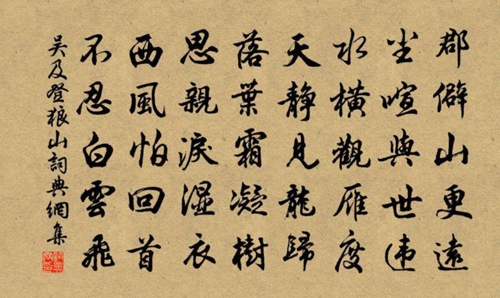 郡僻山更遠
尘喧與世违
水橫觀雁度
天靜見龍歸
落葉霜凝樹
思親淚濕衣
西風怕回首
不忍白雲飛
吴及登狼山詞典網集